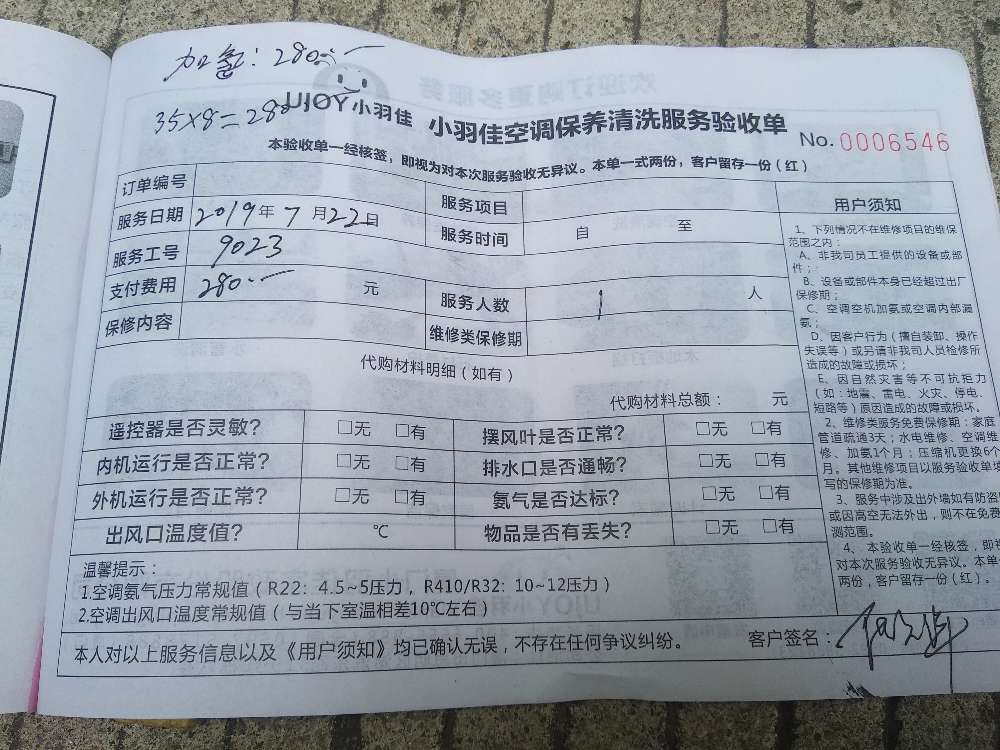 加氨：280
35×8=280
UJOY 小羽佳 小羽佳空调保养清洗服务验收单
No. 0006546
本验收单一经核签，即视为对本次服务验收无异议。本单一式两份，客户留存一份（红）
订单编号 服务项目
服务日期 2019年7月22日 服务时间 自 至
服务工号 9023
支付费用 280 元 服务人数 1 人
保修内容 维修类保修期
代购材料明细（如有）
代购材料总额： 元
遥控器是否灵敏？ □无 □有 摆风叶是否正常？ □无 □有
内机运行是否正常？ □无 □有 排水口是否通畅？ □无 □有
外机运行是否正常？ □无 □有 氨气是否达标？ □无 □有
出风口温度值？ ℃ 物品是否有丢失？ □无 □有
温馨提示：
1.空调氨气压力常规值（R22：4.5~5压力，R410/R32：10~12压力）
2.空调出风口温度常规值（与当下室温相差10℃左右）
本人对以上服务信息以及《用户须知》均已确认无误，不存在任何争议纠纷。 客户签名：
用户须知
1、下列情况不在维修项目的维保
范围之内：
A、非我司员工提供的设备或部
件；
B、设备或部件本身已经超过出厂
保修期；
C、空调空机加氨或空调内部漏
氨；
D、因客户行为（擅自装卸、操作
失误等）或另请非我司人员检修所
造成的故障或损坏；
E、因自然灾害等不可抗拒力
（如：地震、雷电、火灾、停电、
短路等）原因造成的故障或损坏。
2、维修类服务免费保修期：家庭
管道疏通3天；水电维修、空调维
修、加氨1个月；压缩机更换6个
月。其他维修项目以服务验收单填
写的保修期为准。
3、服务中涉及出外墙如有防盗
或因高空无法外出，则不在免费
测范围。
4、本验收单一经核签，即视
对本次服务验收无异议。本单
两份，客户留存一份（红）。